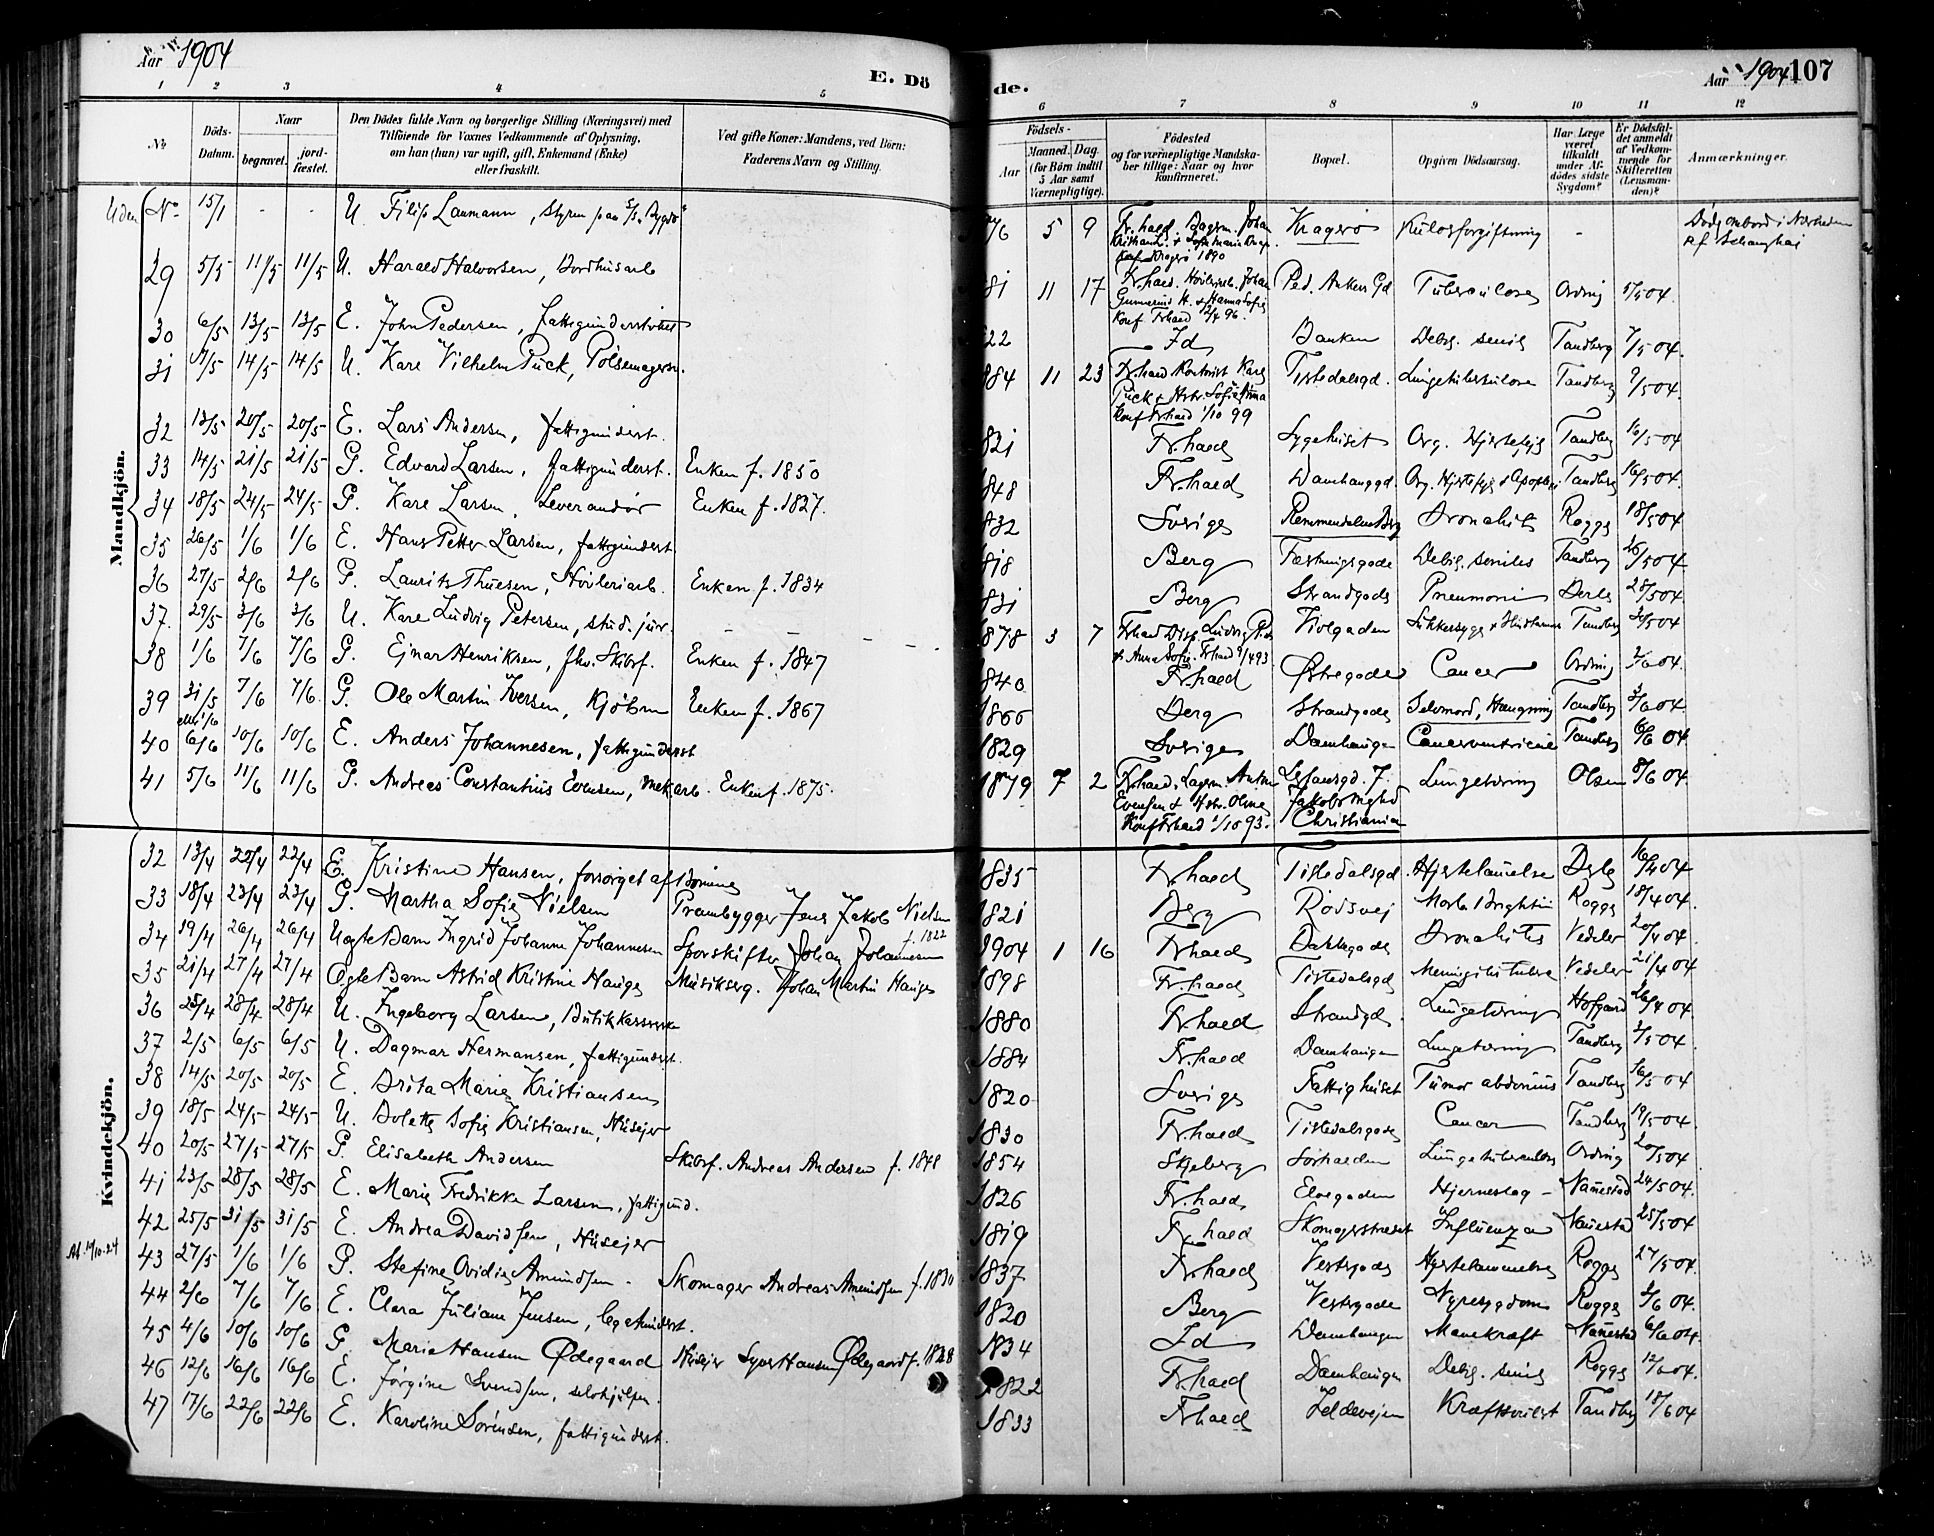 Aar 1904
E. Dö
de.
Aar 1904 107
1 2 3 4 5 6 7 8 9 10 11 12
№
Döds-Datum.
Naar
begravet.
jord-fæstet.
Den Dödes fulde Navn og borgerlige Stilling (Næringsvei) med
Tilföiende for Voxnes Vedkommende af Oplysning.
om han (hun) var ugift, gift, Enkemand (Enke)
eller fraskilt.
Ved gifte Koner: Mandens, ved Børn:
Faderens Navn og Stilling.
Födsels-
Aar
Maaned. Dag
(for Börn indtil
5 Aar samt
Værnepligtige).
Födested
og for værnepligtige Mandska-
ber tillige: Naar og hvor
konfirmeret.
Bopæl.
Opgiven Dödsaarsag.
Har Læge
været
tilkaldt
under Af-
dödes sidste
Sygdom?
Er Dödsfal-
det anmeldt
af Vedkom-
mende for
Skifteretten
(Lensman-
den)?
Anmærkninger.
Mandkjön.
Uden No 15/1 - - U. Filip Laumann, 76 5 9 Fr.hald Kragerö Kulosforgiftning - Död ombord i Nærheden
af Schanghai
29 5/5 11/5 11/5 U. Harald Halvorsen, 81 11 17 Fr.hald Ped. Ankers Gd Tuberculose Ording 5/5 04.
Konf Frhald 12/4 96.
30 6/5 13/5 13/5 E. John Pedersen, fattigunderstöttet 22 Id Banken Debil. senil Tandberg 7/5 04.
31 7/5 14/5 14/5 U. Karl Vilhelm Puck, Pölsemagersv. 884 11 23 Tistedalsgd. Lungetuberkulose Tandberg 9/5 04.
Konf Frhald 1/10 99
32 13/5 20/5 20/5 E. Lars Andersen, fattigunderst. 821 Fr.hald Sygehuset Org. Hjertefejl Tandberg 16/5 04
33 14/5 21/5 21/5 G. Edvard Larsen, fattigunderst. Enken f. 1850 848 Fr.hald Damhauggd. Tandberg 16/5 04.
34 18/5 24/5 24/5 G. Karl Larsen, Leverandör Enken f. 1827. 832 Sverige Bronchit Rogge 18/5 04
35 26/5 1/6 1/6 E. Hans Petter Larsen, fattigunderst 818 Berg Fæstningsgade Debil. seniles Tandberg 26/5 04
36 27/5 2/6 2/6 G. Laurits Thuesen, Hövleriarb. Enken f. 1834 831 Berg Strandgade Pneumoni 28/5 04
37. 29/5 3/6 3/6 U. Karl Ludvig Petersen, stud. jur. 1878 3 7 Violgaden Tandberg 30/5 04
38 1/6 7/6 7/6 G. Ejnar Henriksen, fhv. Skibsf. Enken f. 1847 840 Fr.hald Østregade Cancer Ording 2/6 04.
39 31/5 eller 1/6 7/6 7/6 G. Ole Martin Iversen, Kjöbm Enken f. 1867 1866 Berg Strandgade Selvmord, Hængning Tandberg 3/6 04.
40 6/6 10/6 10/6 E. Anders Johannesen, fattigunderst 1829 Sverige Damhaugen Cancer ventriculi Tandberg 6/6 04
41 5/6 11/6 11/6 G. Andreas Constantius Evensen, mek arb. Enken f. 1875. 1879 7 2 Lungetæring Olsen 8/6 04.
Konf Frhald 1/10 93. Christiania
Kvindekjön.
32 13/4 20/4 22/4 E. Kristine Hansen, forsörget af Börnene 1835 Fr.hald Tistedalsgd. Hjertelammelse 16/4 04
33 18/4 23/4 23/4 G. Martha Sofie Nielsen Prambygger Jens Jakob Nielsen f. 1822 1821 Berg Rödsvej Morb. Brightii Rogge 18/4 04.
34 19/4 26/4 26/4 Uægte Barn Ingrid Johanne Johannesen Sporskifter Johan Johannesen 1904 1 16 Fr.hald Bakkegade Bronchitis Vedeler 20/4 04
35 21/4 27/4 27/4 Ægte Barn Astrid Kristine Hauge Musikserg. Johan Martin Hauge 1898 Fr.hald Tistedalsgd Vedeler 21/4 04
36 25/4 28/4 28/4 U. Ingeborg Larsen, Butikkasserske 1880 Fr.hald Strandgd. Lungetæring Hofgaard 26/4 04.
37 2/5 6/5 6/5 U. Dagmar Hermansen, fattigunderst. 1884 Fr.hald Damhaugen Lungetæring Tandberg 3/5 04.
38 14/5 20/5 20/5 E. Brita Marie Kristiansen 1820 Sverige Fattighuset Tumor abdominis Tandberg 16/5 04
39 18/5 24/5 24/5 U. Bolette Sofie Kristiansen, Husejer 1830 Fr.hald Tistedalsgade Cancer Tandberg 19/5 04.
40 20/5 27/5 27/5 G. Elisabeth Andersen Skibsf. Andreas Andersen f. 1848 1854 Skjeberg Sörhalden Lungetuberculos Ording 20/5 04
41 23/5 28/5 28/5 E. Marie Fredrikke Larsen, fattigund. 1826 Fr.hald Elvegaden Hjerneslag - Nannestad 24/5 04.
42 25/5 31/5 31/5 E. Andrea Davidsen, Husejer 1819 Fr.hald Skomagerstrædet Influenza Nannestad 25/5 04
At. 14/10-24 43 27/5 1/6 1/6 G. Stefine Ovidie Amundsen - Skomager Andreas Amundsen f. 1830 1837 Fr.hald Vestregade Hjertelammelse Rogge 27/5 04.
44 2/6 7/6 7/6 E. Clara Juliane Jensen, legatunderst. 1820 Berg Vestregade Nyresygdom Rogge 3/6 04.
45 4/6 10/6 10/6 G. Marie Hansen Ødegaard Husejer Syver Hansen Ødegaard f. 1828 1834 Id Damhaugen Mavekræft Nannestad 6/6 04
46 12/6 16/6 16/6 E. Jørgine Svendsen, selvhjulpen. 1822 Fr.hald Damhaugen Debil. senil Rogge 12/6 04.
47 17/6 22/6 22/6 E. Karoline Sörensen, fattigunderst. 1833 Frhald Ildevejen Kræftsvulst Tandberg 18/6 04